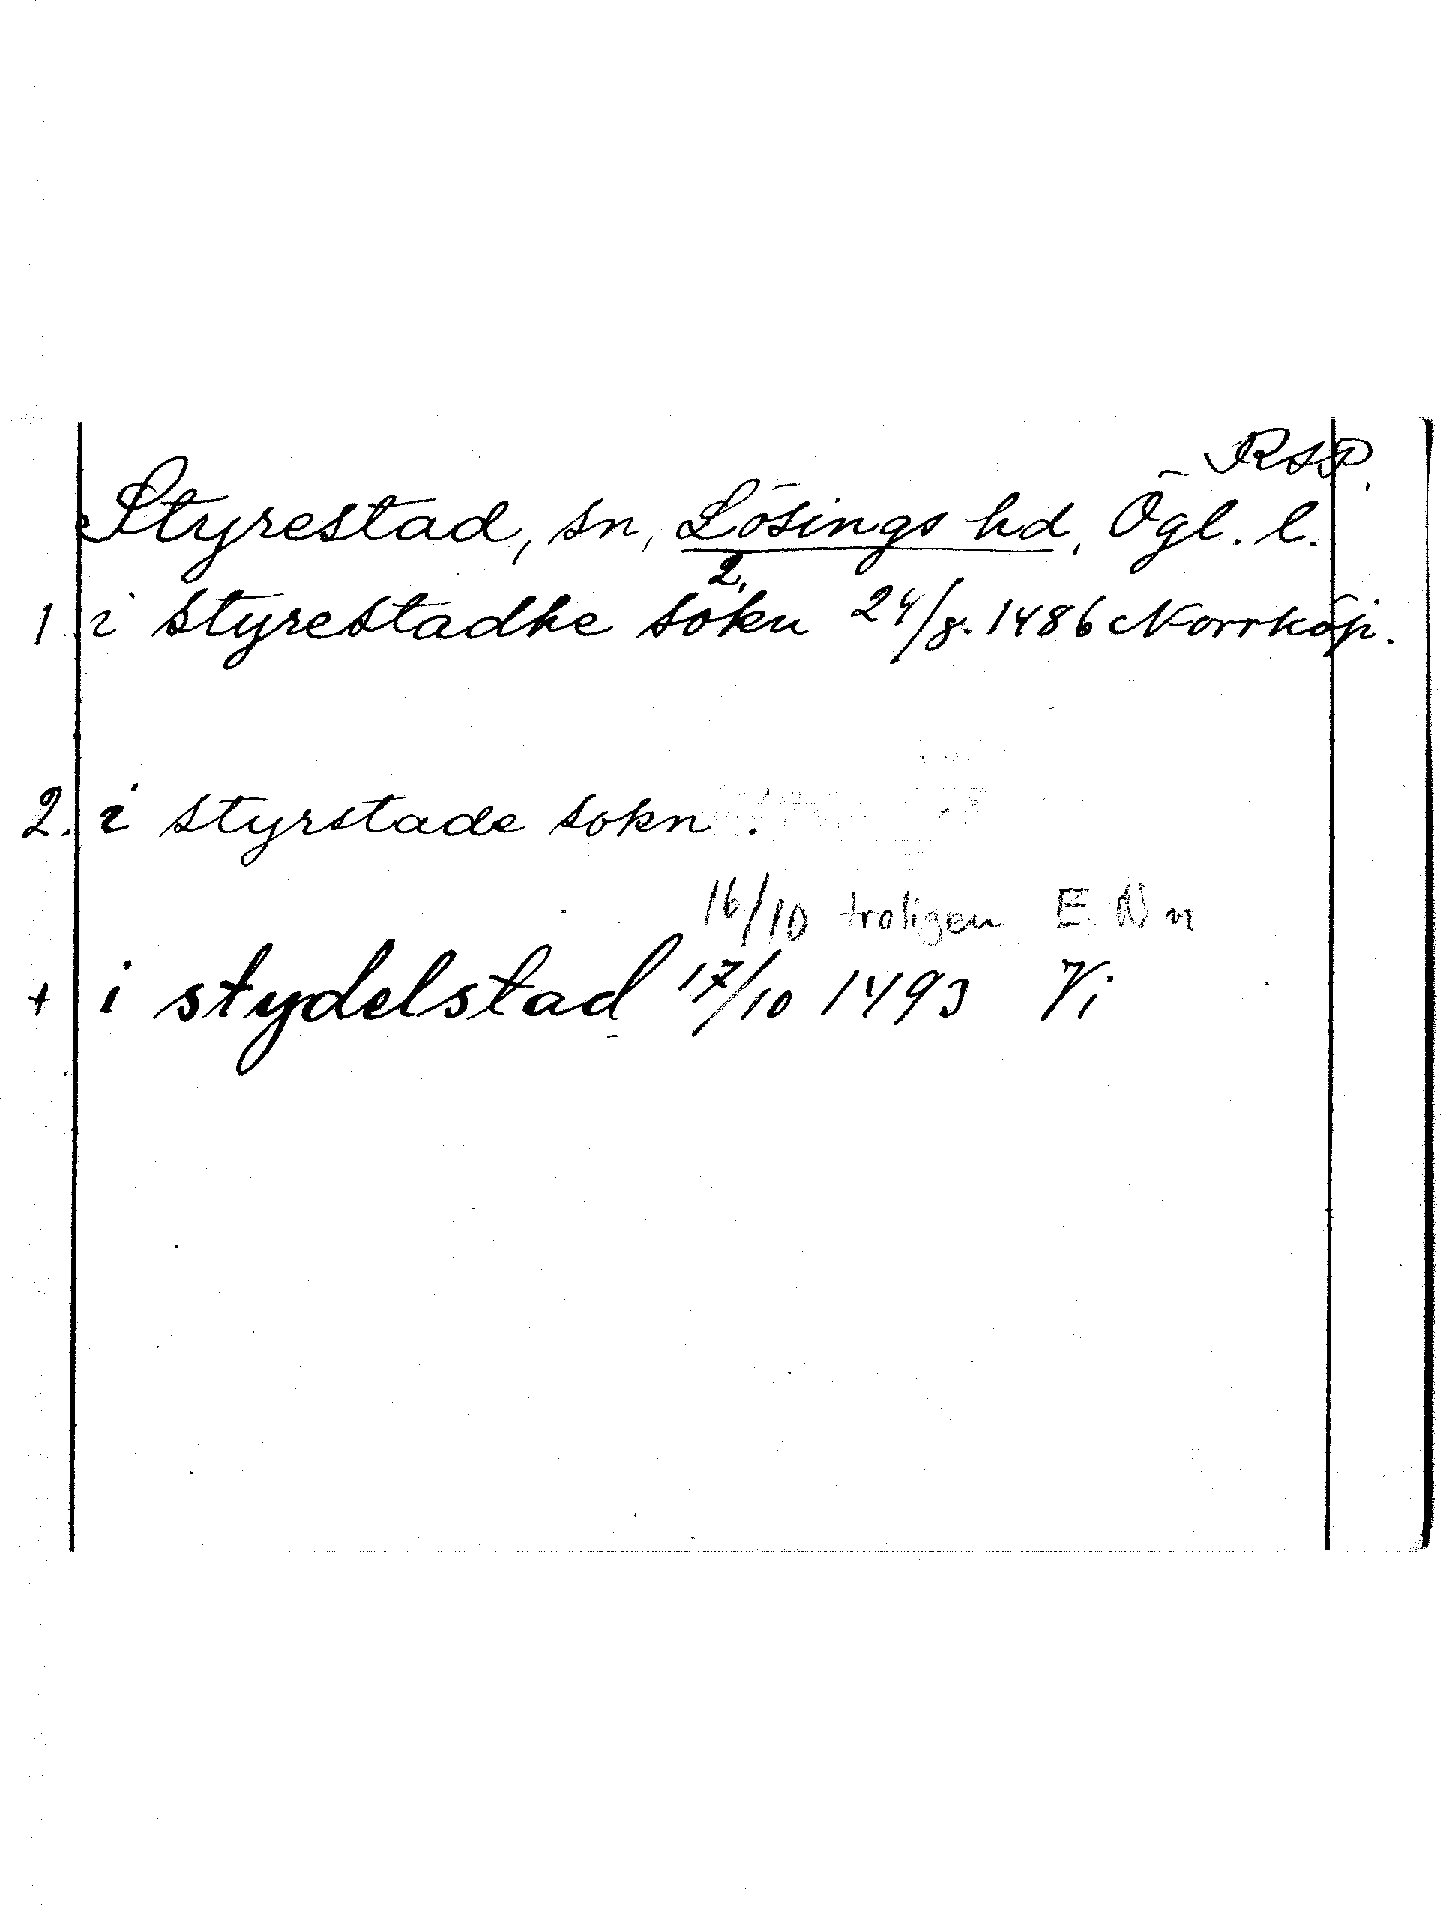 RSP.
Styrestad, sn, Lösings hd, Ögl. l.
2.
1 i styrestadhe sokn 24/8. 1486 Norrköp.
2. i styrstade sokn.
16/10 troligen E. Nn
+ i stydelstad 17/10 1493 Vi